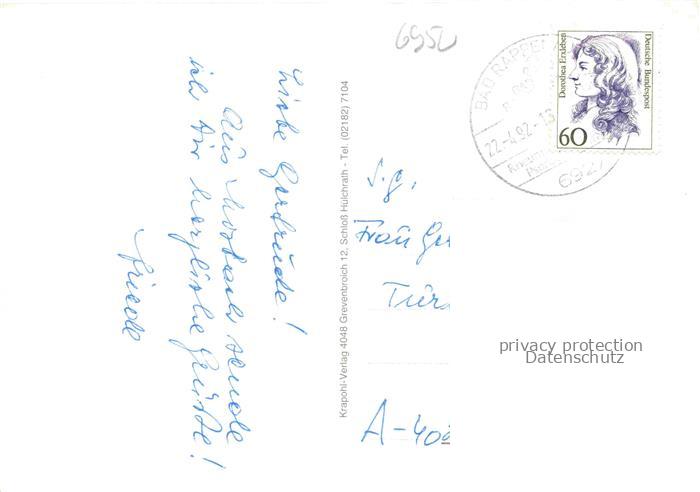 6952
Liebe Gertrude!
Aus Mosbach sende
ich Dir herzliche Grüße!
Friede
Krapohl-Verlag 4048 Grevenbroich 12, Schloß Hülchrath - Tel. (02182) 7104
BAD RAPPEN
22.-4.92-13
6927
Dorothea Erxleben
Deutsche Bundespost
60
S.g.
Frau Ger
A-40
privacy protection
Datenschutz